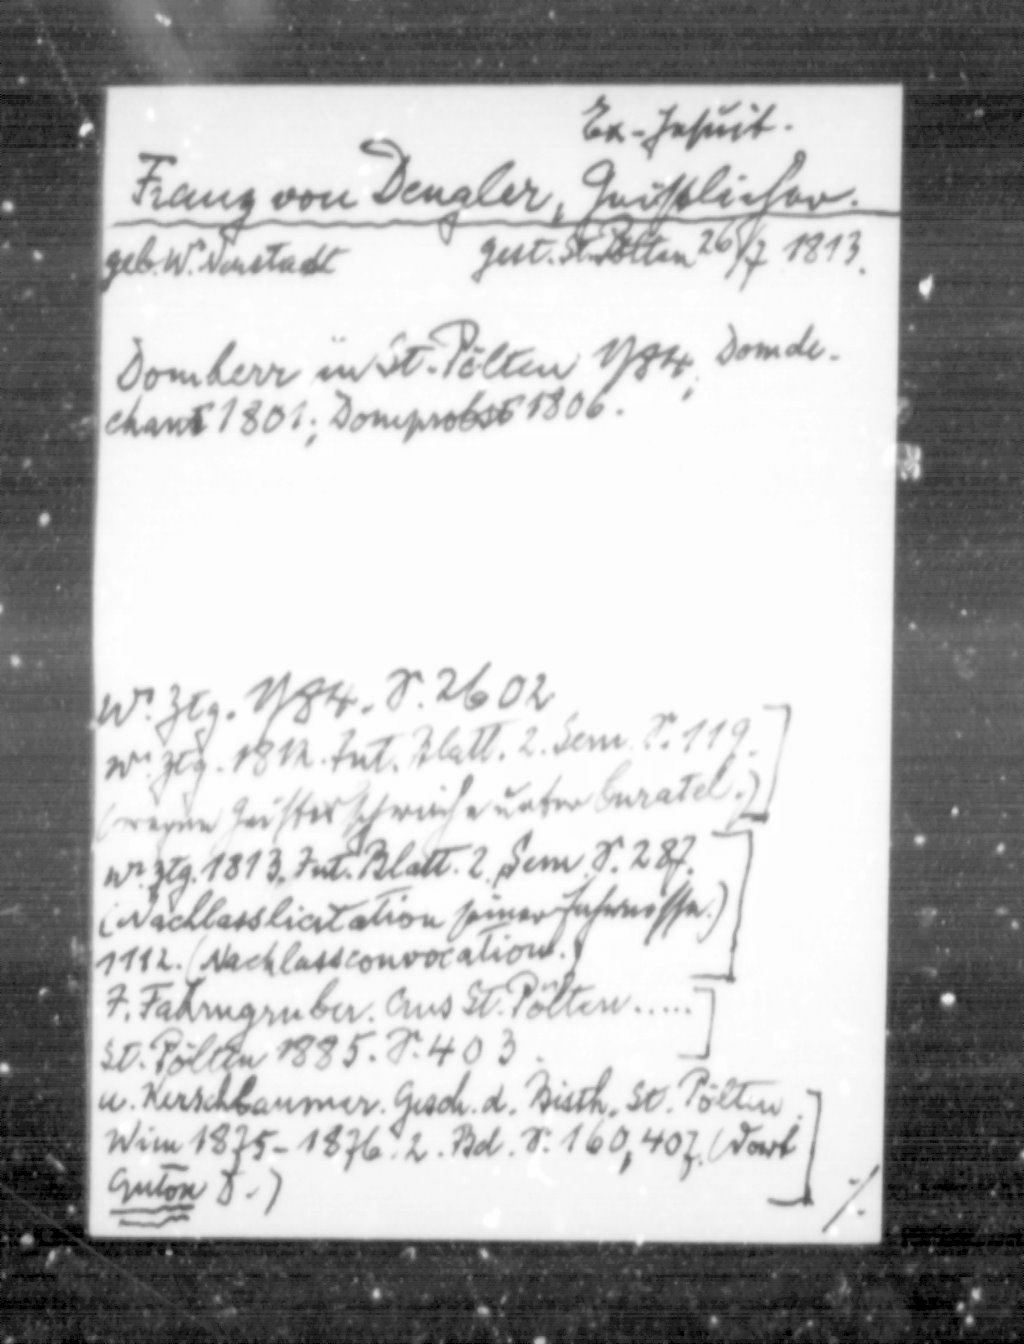 Ex-Jesuit.
Franz von Dengler, Geistlicher.
geb. Wr. Neustadt gest. St. Pölten 26/7 1813.
Domherr in St. Pölten 1784; Domde-
chant 1801; Domprobst 1806.
Wr. Ztg. 1784. S. 2602
Wr. Ztg. 1812. Int. Blatt. 2. Sem. S. 119.
(wegen Geistesschwäche unter Curatel.)
Wr. Ztg. 1813. Int. Blatt. 2. Sem. S. 287.
(Nachlasslicitation seiner Fahrnisse.)
1112. (Nachlassconvocation.)
F. Fahrngruber. Aus St. Pölten.....
St. Pölten 1885. S. 403.
u. Kerschbaumer. Gesch. d. Bisth. St. Pölten.
Wien 1875-1876. 2. Bd. S. 160, 407. (dort
Anton D.)